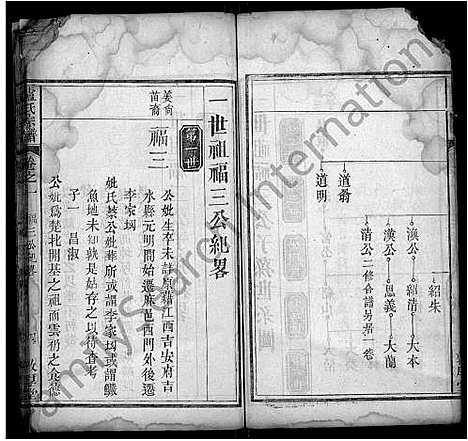 紹朱
渙公 紹清 大本
道翁 漢公 思義 大蘭
清公 二修合譜另居一卷
道明
一世祖福三公紀畧
第一世
福三
公妣生卒未詳原籍江西吉安府吉
水縣元明間始遷麻邑西門外後遷
李家垇
妣氏蔡公妣葬所或謂李家垇或謂
魚地未知孰是姑存之以待查考
子一 昌淑
公妣爲楚北開基之祖而雲礽之食德
氏宗譜
卷之一
福三公紀畧
FamilySearch International